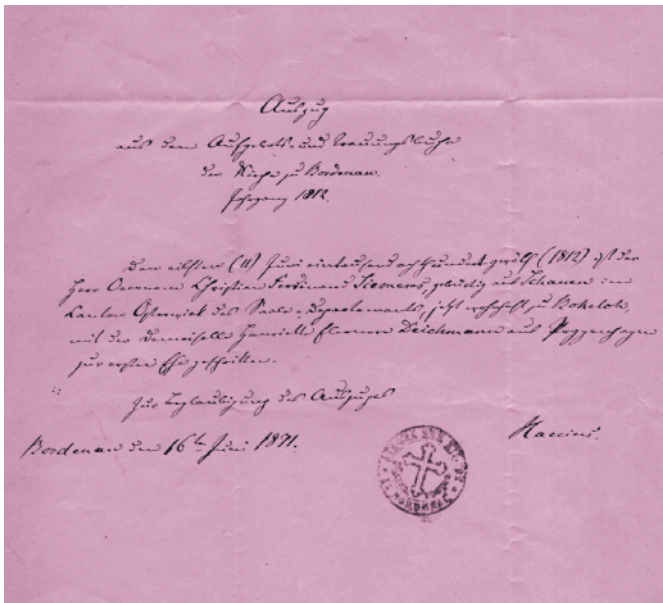 Auszug
aus dem Aufgebots- und Trauungsbuche
der Kirche zu Bordenau.
Jahrgang 1812.
Den eilften (11) Juni eintausend achthundert zwölf (1812) ist der
Herr Oeconom Christian Ferdinand Siemens, gebürtig aus Schauen im
Canton Osterwiek des Saale-Departements, jetzt wohnhaft zu Bokeloh,
mit der Demoiselle Henriette Eleonore Deichmann aus Poggenhagen
zur ersten Ehe geschritten.
Zur Beglaubigung des Auszuges
Bordenau den 16ten Juni 1891.
Haccius.